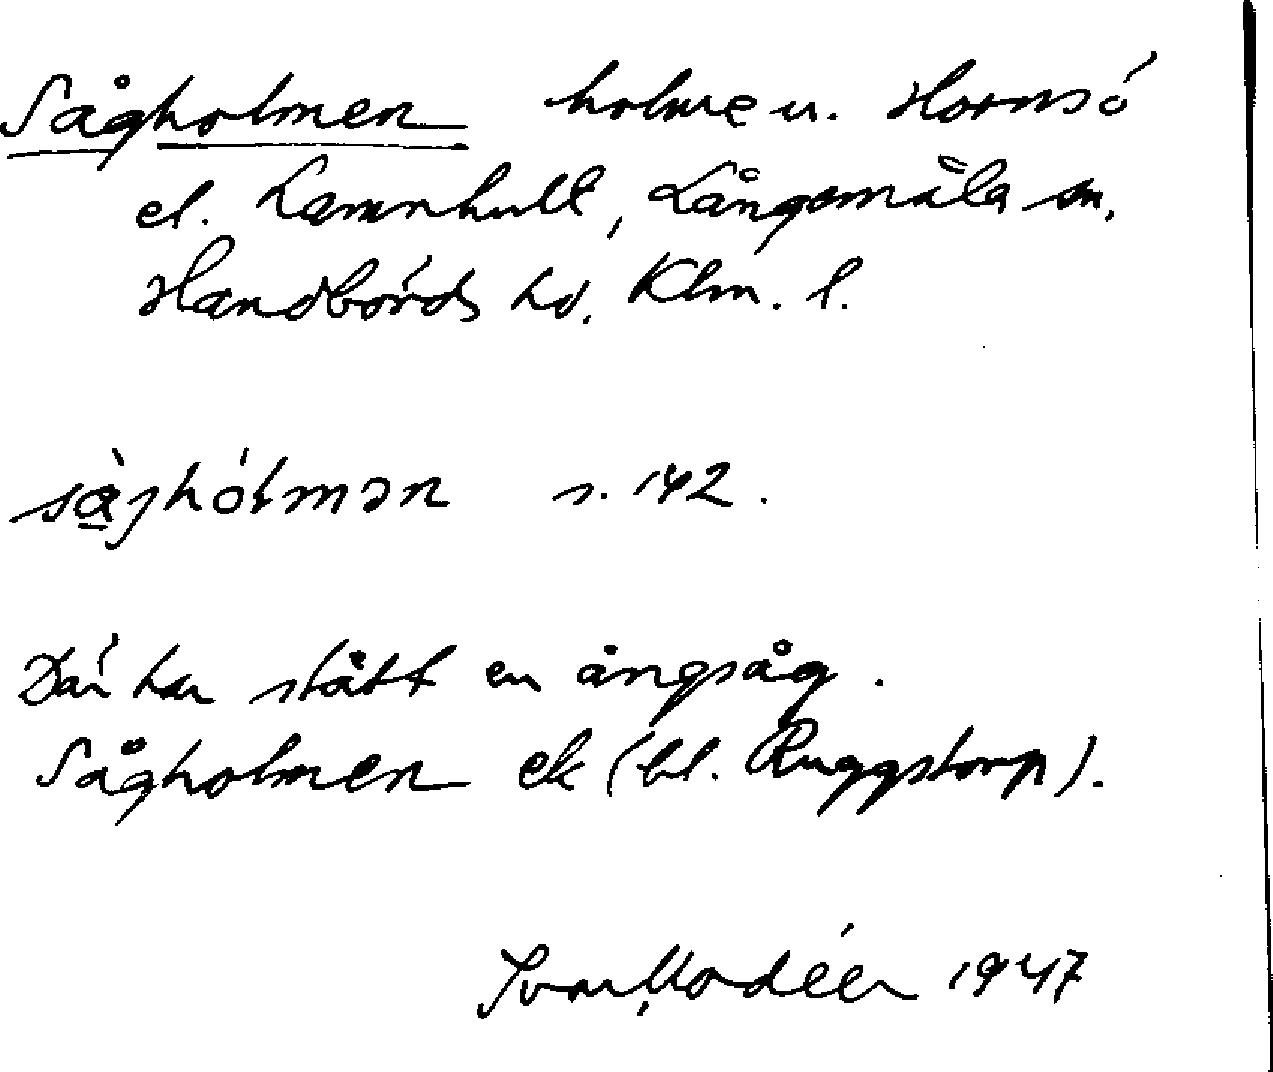 Sågholmen holme u. Hornsö
el. Lamnhult, Långemåla sn,
Handbörds hd. Klm. l.
s. 142.
Där har stått en ångsåg.
Sågholmen ek (bl. Ruggstorp).
Ivar Modéer 1947